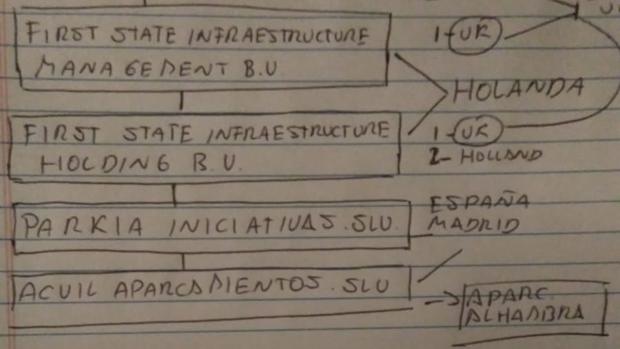 FIRST STATE INFRAESTRUCTURE
MANAGEDENT B.U.
1-UK
HOLANDA
FIRST STATE INFRAESTRUCTURE
HOLDING B.U.
1-UK
2-HOLLAND
PARKIA INICIATIVAS.SLU.
ESPAÑA
MADRID
ACVIL APARCADIENTOS.SLU
APARC.
ALHADBRA